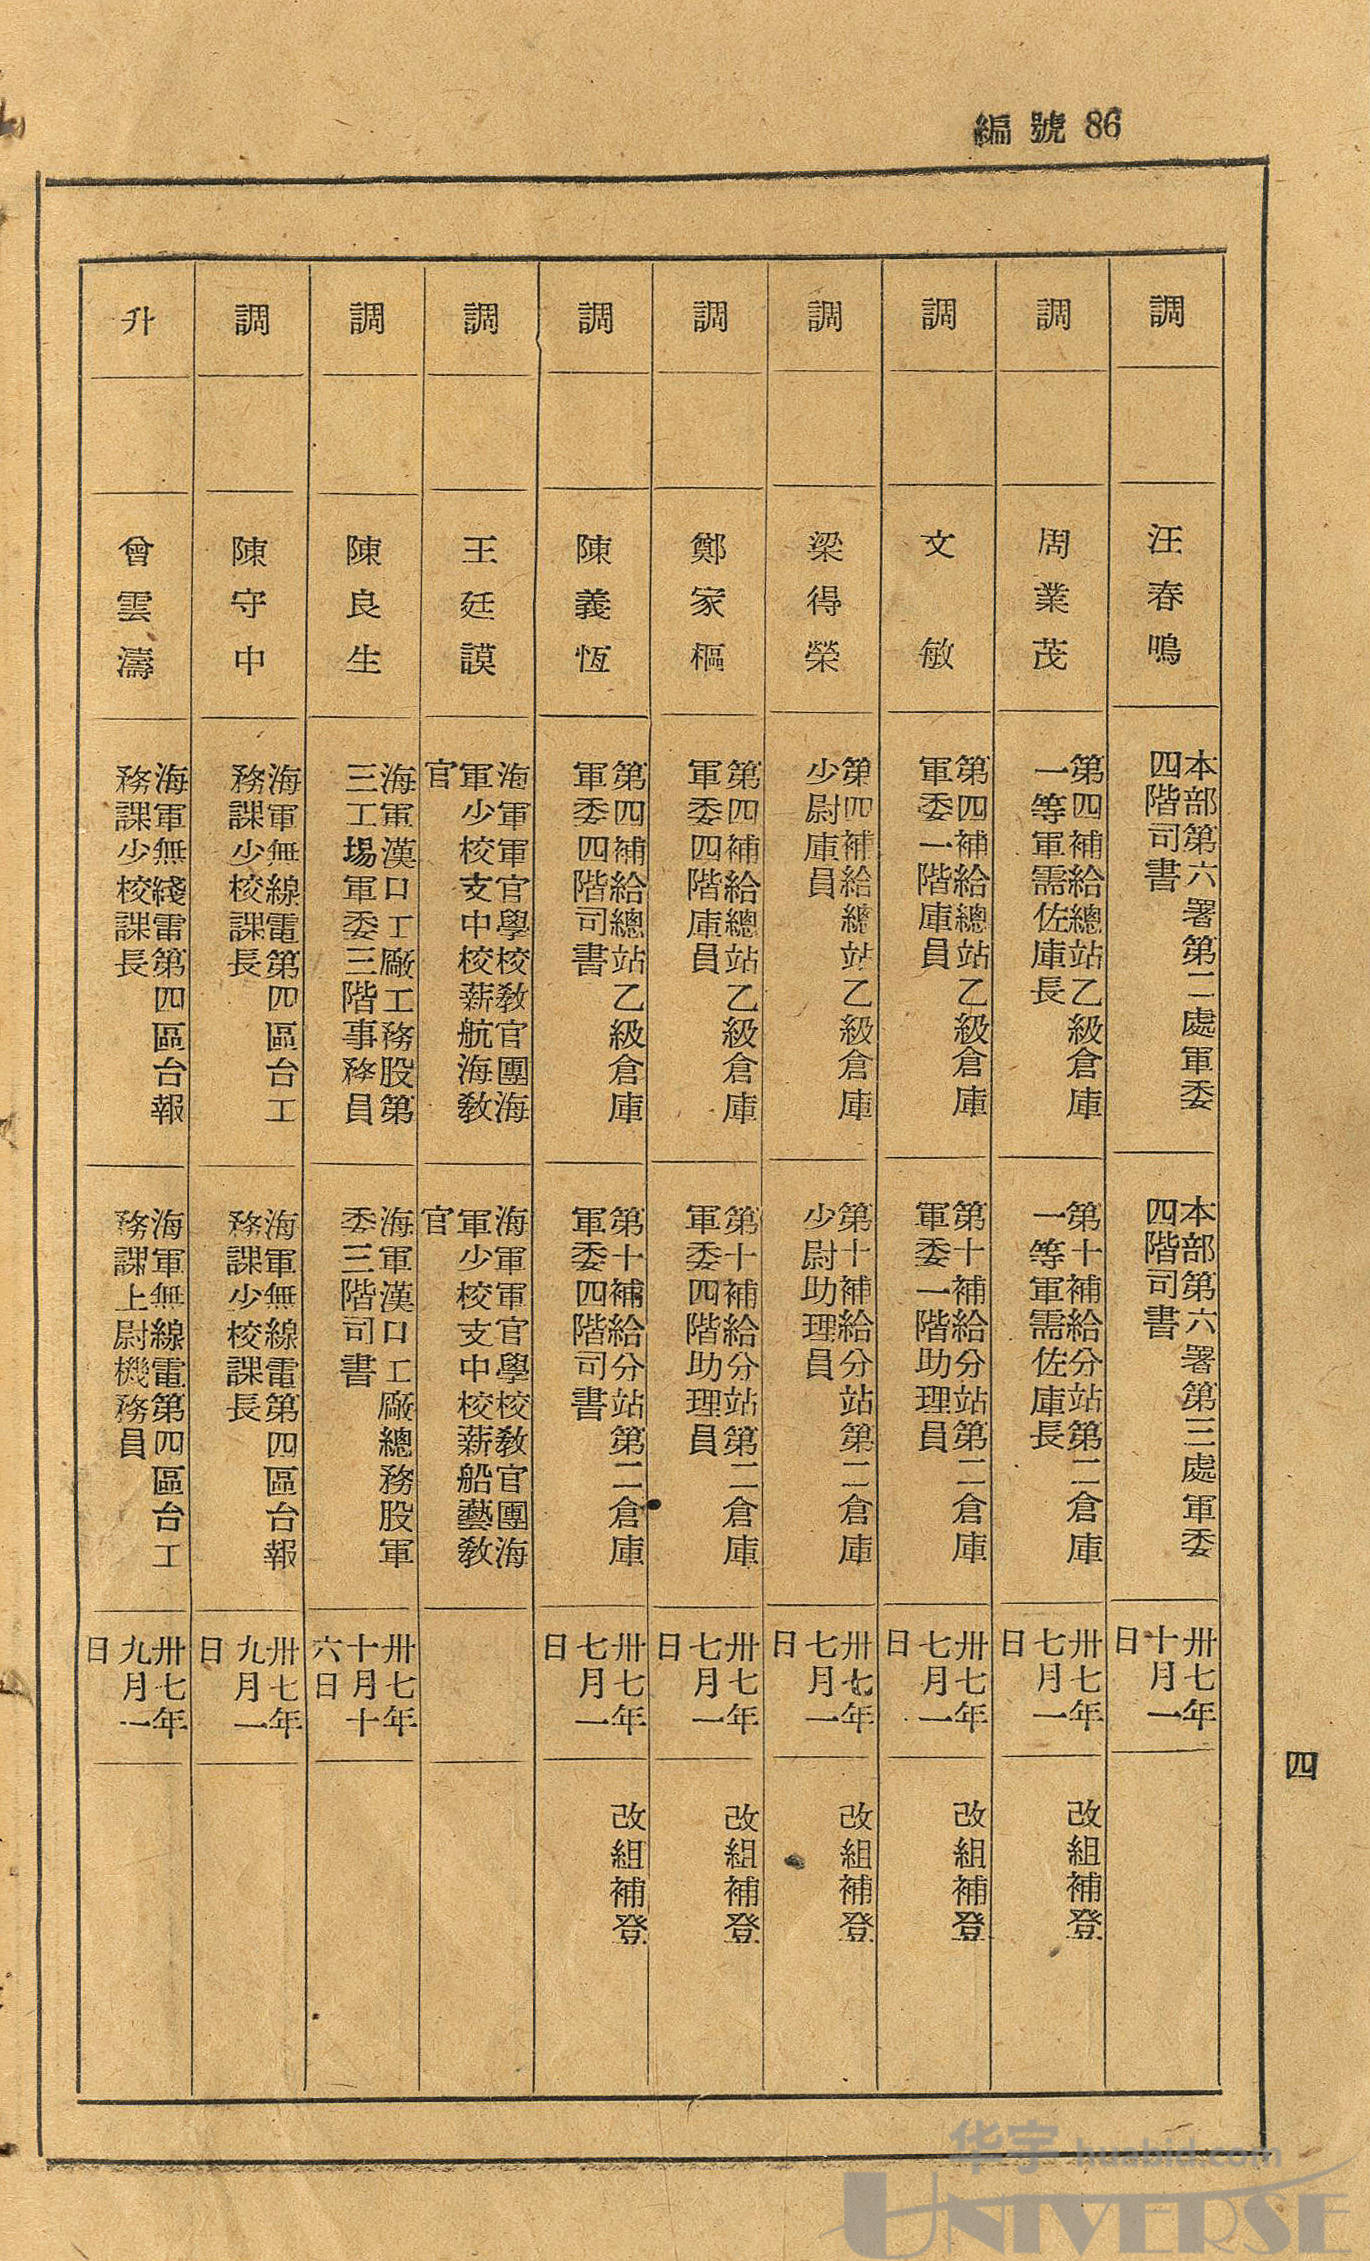 編號 86
四
調
汪春鳴
本部第六署第二處軍委
四階司書
本部第六署第三處軍委
四階司書
卅七年
十月一
日
調
周業茂
第四補給總站乙級倉庫
一等軍需佐庫長
第十補給分站第二倉庫
一等軍需佐庫長
卅七年
七月一
日
改組補登
調
文敏
第四補給總站乙級倉庫
軍委一階庫員
第十補給分站第二倉庫
軍委一階助理員
卅七年
七月一
日
改組補登
調
梁得榮
第四補給總站乙級倉庫
少尉庫員
第十補給分站第二倉庫
少尉助理員
卅七年
七月一
日
改組補登
調
鄭家樞
第四補給總站乙級倉庫
軍委四階庫員
第十補給分站第二倉庫
軍委四階助理員
卅七年
七月一
日
改組補登
調
陳義恆
第四補給總站乙級倉庫
軍委四階司書
第十補給分站第二倉庫
軍委四階司書
卅七年
七月一
日
改組補登
調
王廷謨
海軍軍官學校教官團海
軍少校支中校薪航海教
官
海軍軍官學校教官團海
軍少校支中校薪船藝教
官
調
陳良生
海軍漢口工廠工務股第
三工場軍委三階事務員
海軍漢口工廠總務股軍
委三階司書
卅七年
十月十
六日
調
陳守中
海軍無線電第四區台工
務課少校課長
海軍無線電第四區台報
務課少校課長
卅七年
九月一
日
升
曾雲濤
海軍無綫雷第四區台報
務課少校課長
海軍無線電第四區台工
務課上尉機務員
卅七年
九月一
日
华宇 huabid.com
UNIVERSE